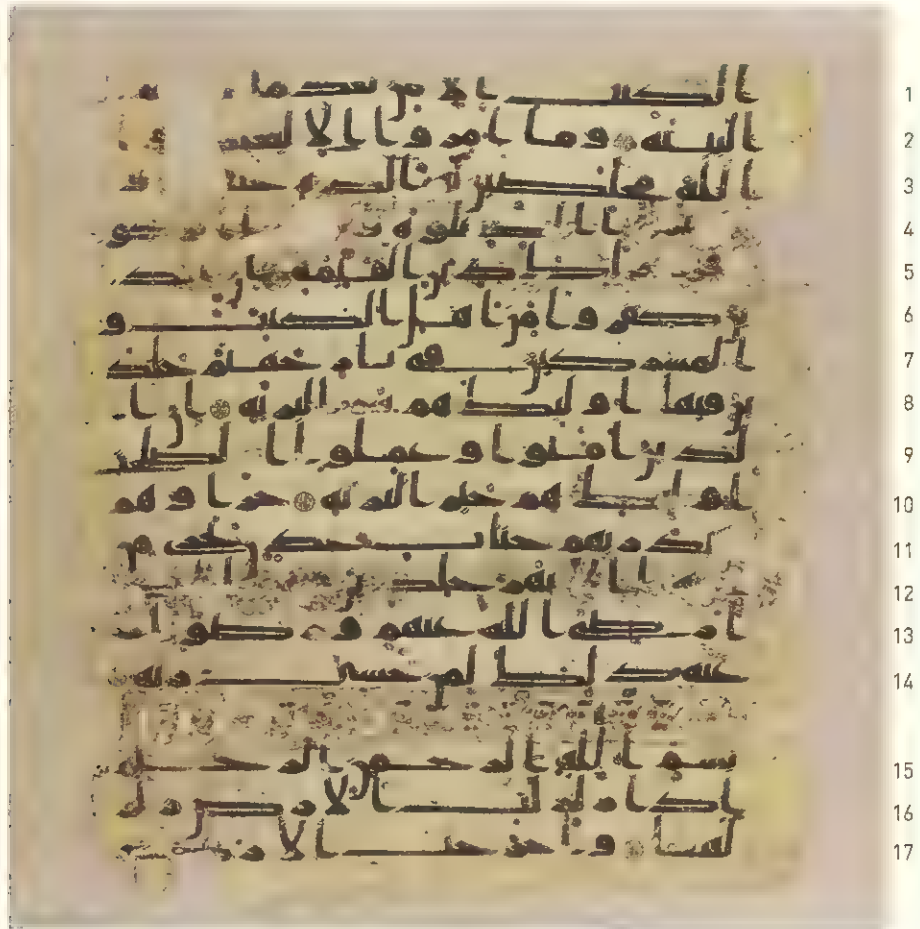 1 الكتب الا من بعد ما
2 البينه وما امروا الا ليعبد
3 الله مخلصين له الدين حنفا و
4 الصلوه
5 ذلك دين القيمه ان الذ
6 ين كفروا من اهل الكتب و
7 المشركين في نار جهنم خلد
8 ين فيها اولئك هم شر البريه ان ا
9 لذين امنوا وعملوا الصلح
10 اولئك هم خير البريه جزاوهم
11 عند ربهم جنت عدن تجري م
12 ن تحتها الانهر خلدين فيها
13 ابدا رضي الله عنهم ورضوا
14 عنه ذلك لمن خشي ربه
15 بسم الله الرحمن الرحيم
16 اذا زلزلت الارض زلز
17 الها واخرجت الارض